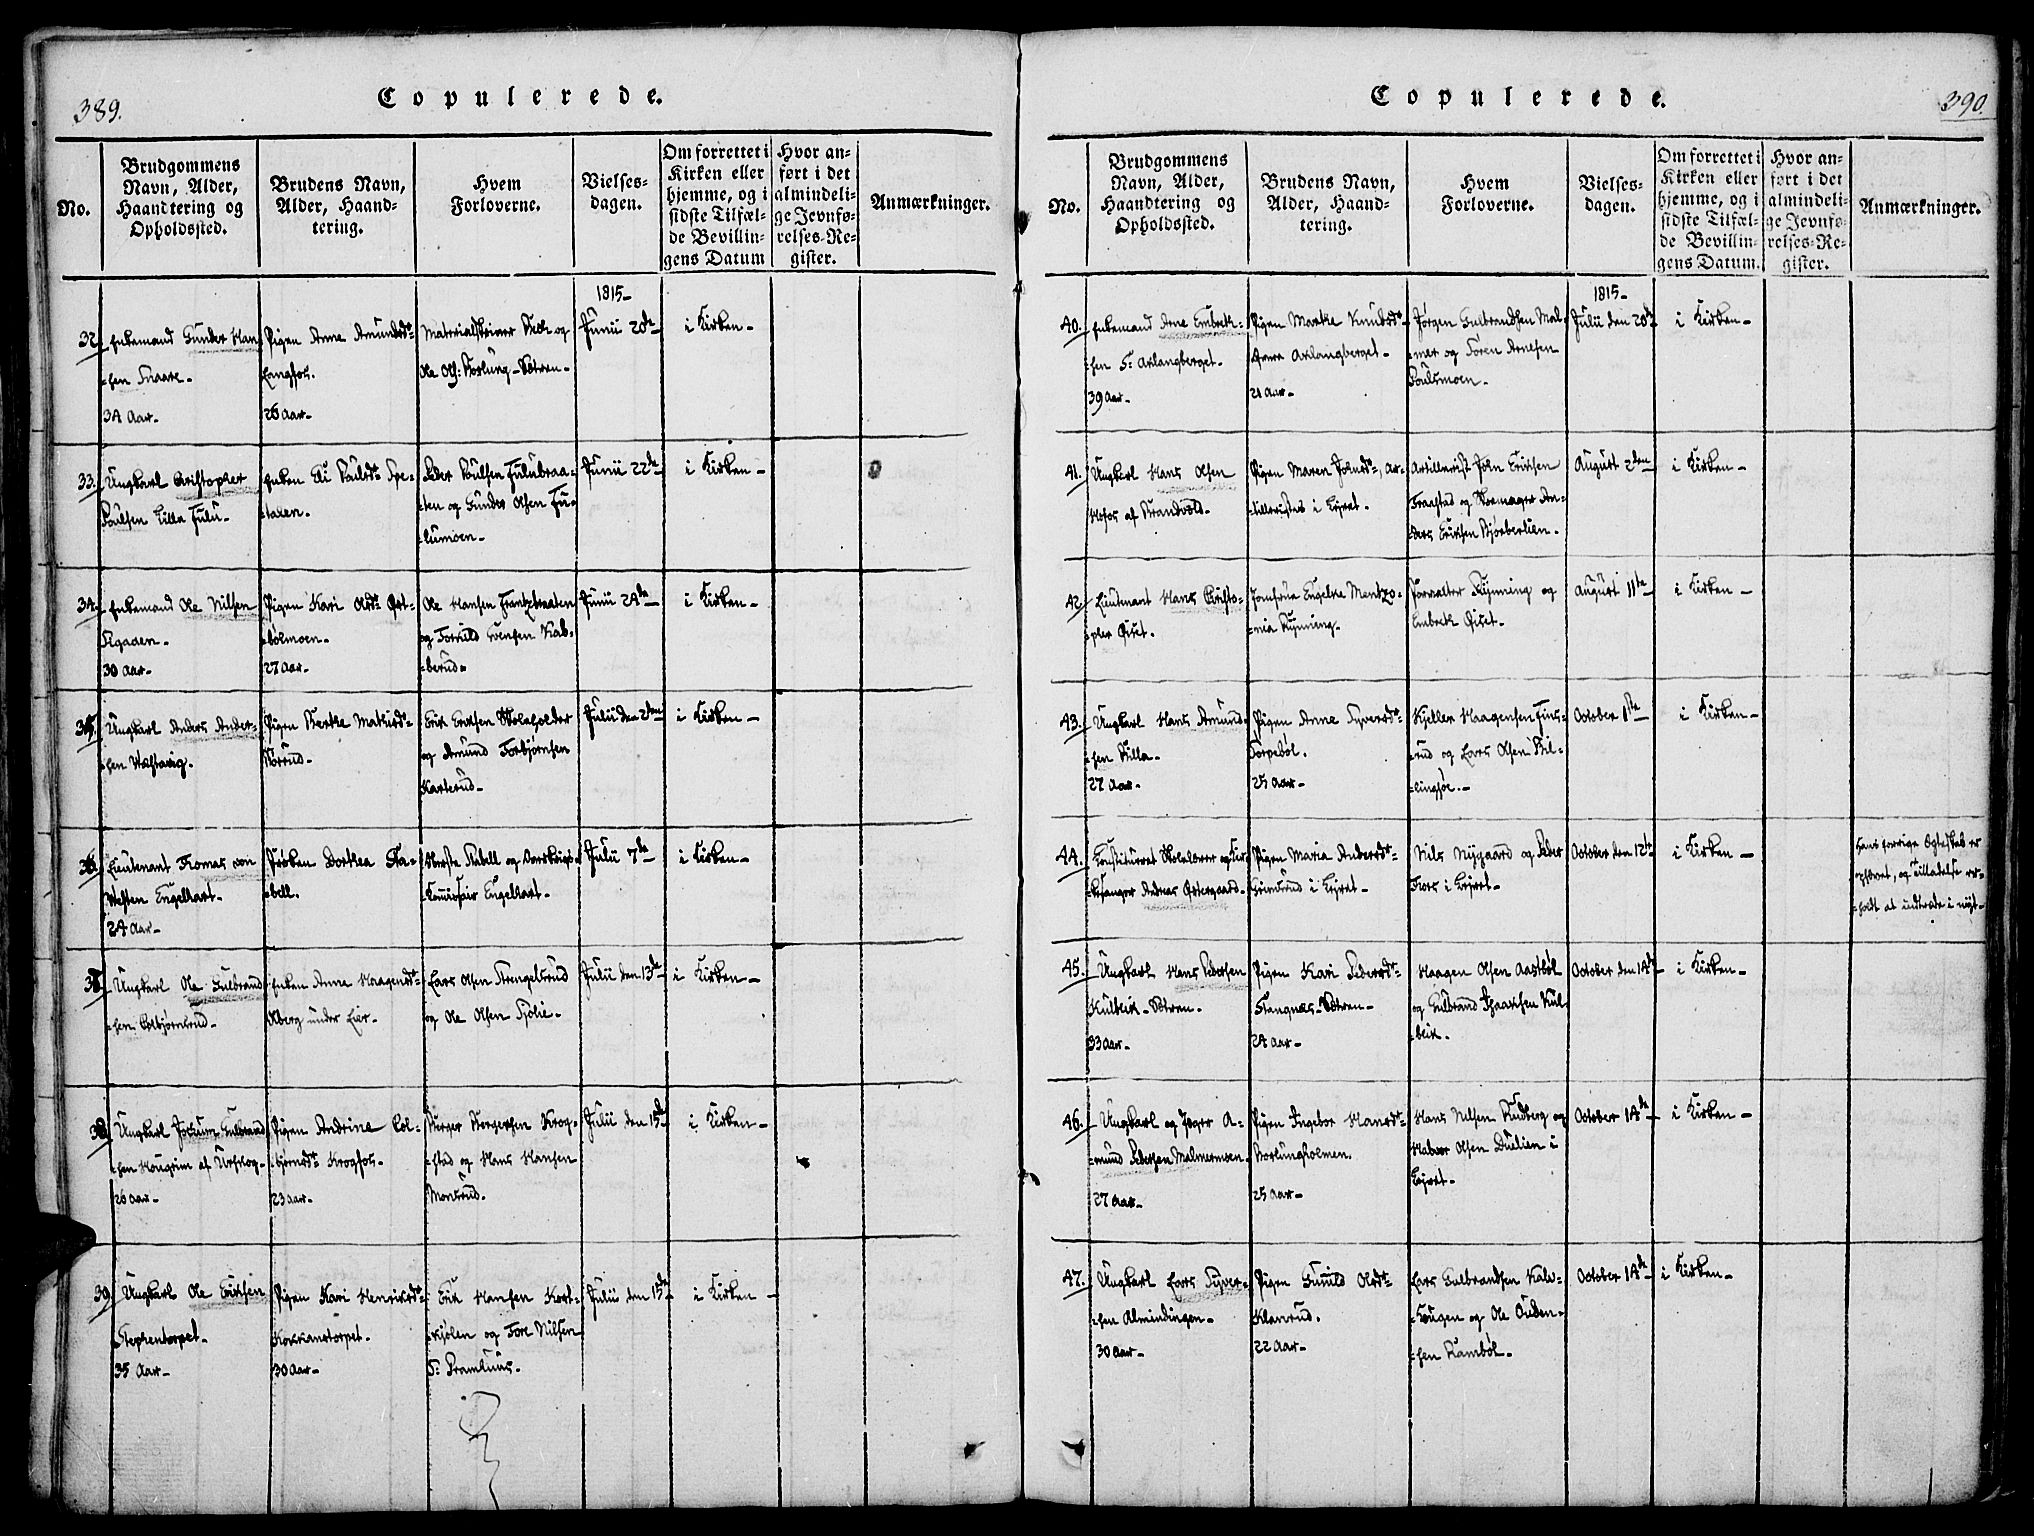 389.
Copulerede.
No.
Brudgommens
Navn, Alder,
Haandtering og
Opholdssted.
Brudens Navn,
Alder, Haand-
tering.
Hvem
Forloverne.
Vielses-
dagen.
Om forrettet i
Kirken eller
hjemme, og i
sidste Tilfæl-
de Bevillin-
gens Datum
Hvor an-
ført i det
almindeli-
ge Jevnfø-
relses-Re-
gister.
Anmærkninger.
1815-
32.
Enkemand Gunder Han-
=sen Snaare.
34 Aar-
Pigen Anne Amundsdt
Langfos.
26 Aar-
Materialskriver Beck og
Ole Ols: Norlung-Østren-
Junii 20de
i Kirken-
33.
Ungkarl Christopher
Poulsen Lilla Fulu-
Enken Eli Paulsdt Spe-
=taxen.
Peder Poulsen Fulubraa-
=ten og Gunder Olsen Fu-
=lumoen-
Junii 22de
i Kirken-
34.
Enkemand Ole Nilsen
Agaden-
30 Aar-
Pigen Kari Olsdt Øst-
=bølmoen-
27 Aar-
Ole Hansen Frantzbraaten
og Torkild Svensen Kab-
=berud-
Junii 24de
i Kirken-
35.
Ungkarl Anders Ander-
=sen Westavig.
Pigen Berthe Mathisdt
Norrud-
Erik Eriksen Skoleholder
og Amund Torbjørnsen
Karterud-
Julii den 2den
i Kirken-
36.
Lieutenant Thomas von
Westen Engelhart-
24 Aar-
Frøken Dorthea Sta-
=bell.
Oberste Stabell og Overkrigs-
=Commissair Engelhart-
Julii 7de
i Kirken-
37.
Ungkarl Ole Gulbrand-
=sen Kolbjørnsrud-
Enken Anne Haagensdt
Aberg under Lier-
Lars Olsen Strengelsrud
og Ole Olsen Sjølie-
Julii den 13de
i Kirken-
38.
Ungkarl Jochum Gulbrand-
=sen Hougrim af Urskog-
26 Aar-
Pigen Andrine Col-
=bjørnsdt Krogfos-
23 Aar-
Børger Børgersen Krog-
=stad og Hans Hansen
Monsrud.
Julii den 15de
i Kirken-
39.
Ungkarl Ole Eriksen
Stephentorpet-
35 Aar-
Pigen Kari Henrichsdt
Kokkanstorpet-
30 Aar-
Erik Hansen Kort-
=kjølen og Tore Nilsen
S: Pramhuus-
Julii den 15de
i Kirken-
390.
Copulerede.
No.
Brudgommens
Navn, Alder,
Haandtering og
Opholdssted.
Brudens Navn,
Alder, Haand-
tering.
Hvem
Forloverne.
Vielses-
dagen.
Om forrettet i
Kirken eller
hjemme, og i
sidste Tilfæl-
de Bevillin-
gens Datum.
Hvor an-
ført i det
almindeli-
ge Jevnfø-
relses-Re-
gister.
Anmærkninger.
1815-
40.
Enkemand Arne Embret-
=sen S: Axlangberget-
39 Aar-
Pigen Marthe Knudsdt
Axlangberget-
21 Aar-
Jørgen Gulbrandsen Mal-
=mer og Søren Arnesen
Poulsmoen-
Julii den 20de
i Kirken-
41.
Ungkarl Hans Olsen
Hofos af Brandvold-
Pigen Maren Johnsdt, ar-
=tilleristens i Leyret-
Artillerist John Eriksen
Fraastad og Skomager An-
=ders Eriksen Bjørberlien-
August 2den
i Kirken-
42.
Lieutenant Hans Christo-
=pher Øiset.
Jomfrue Engelke Mentzo-
=nia Rynning-
Forvalter Rynning og
Embrek Øiset-
August 11te
i Kirken-
43.
Ungkarl Hans Amund-
=sen Killa-
27 Aar-
Pigen Anne Syversdt
Torpebøl.
25 Aar-
Kjelder Haagensen Fins-
=rud og Lars Olsen Bil-
=lingsøe.-
October 1ste
i Kirken-
44.
Constitueret Skolelærer og Kir-
=kesanger Andreas Østergaard-
Pigen Maria Andersdt
Grimsrud i Leyret-
Nils Nygaard og Peder
Fors i Leyret-
October den 12te
i Kirken-
Hans forrige Ægteskab er
ophævet, og Tilladelse er-
=holdt at indtræde i nyt-
45.
Ungkarl Hans Pedersen
Kulblik-Østren-
33 Aar-
Pigen Kari Pedersdt
Stangnæs-Østren-
24 Aar-
Haagen Olsen Aastbøl
og Gulbrand Isaachsen Kul-
=blik.
October den 14de
i Kirken-
46.
Ungkarl og Jæger A-
=mund Pedersen Malmermoen-
27 Aar-
Pigen Ingebor Hansdt
Norlungholmen.
25 Aar-
Hans Nilsen Rudberg og
Halvor Olsen Duelien i
Leyret-
October 14de
i Kirken-
47.
Ungkarl Lars Syver-
=sen Almindingen-
30 Aar-
Pigen Gunild Olsdt
Klanrud.
22 Aar-
Lars Gulbrandsen Kalv-
=hougen og Ole Auden-
=sen Rambøl-
October 14de
i Kirken-